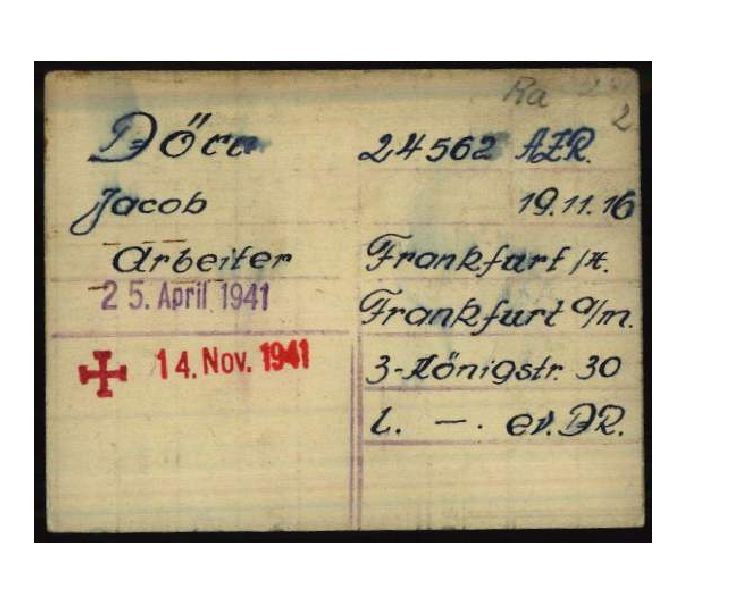 Ra
2
24562 AZR.
Jacob 19.11.16
Arbeiter Frankfurt
25. April 1941 Frankfurt a/m.
14. Nov. 1941 3-Königstr. 30
l. —. ev. DR.